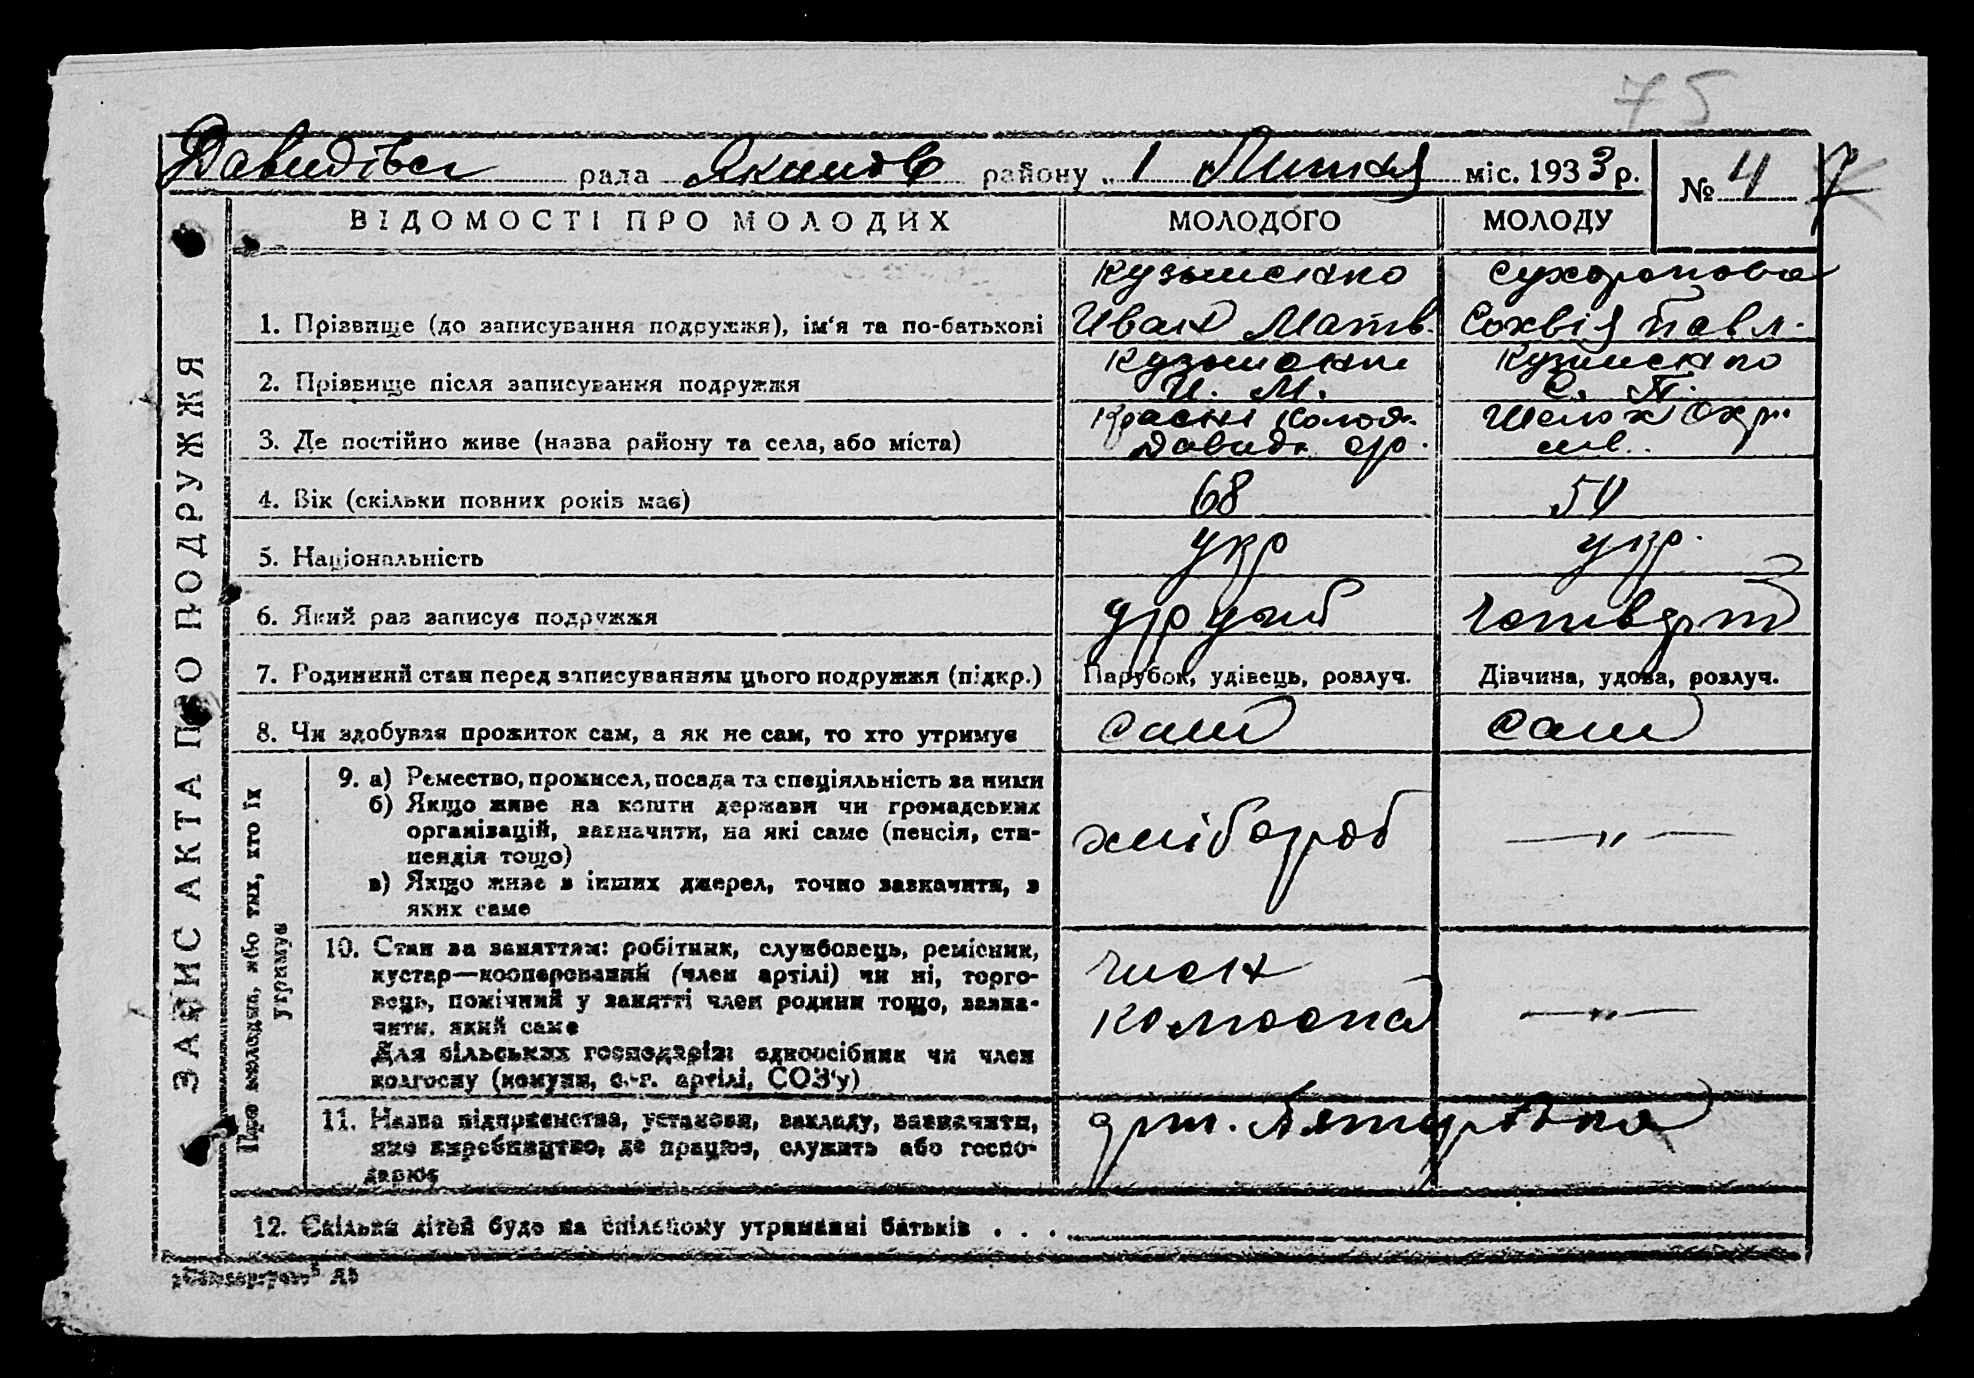 75
Давидівськ рада Якимів району „ 1 " Липня міс. 1933 р. № 4 7
ЗАПИС АКТА ПРО ПОДРУЖЖЯ
ВІДОМОСТІ ПРО МОЛОДИХ МОЛОДОГО МОЛОДУ
1. Прізвище (до записування подружжя), ім‘я та по-батькові Кузьменко Иван Матв. Сохвія Павл.
2. Прізвище після записування подружжя Кузьменко И. М. Кузьменко С. П.
3. Де постійно живе (назва району та села, або міста) Красні Колод. Давид. ср.
4. Вік (скільки повних років має) 68 54
5. Національність укр укр.
6. Який раз записує подружжя другий четвертий
7. Родинний стан перед записуванням цього подружжя (підкр.) Парубок, удівець, розлуч. Дівчина, удова, розлуч.
8. Чи здобував прожиток сам, а як не сам, то хто утримує сам сам
Про молодих, або тих, хто їх утримує
9. а) Ремество, промисел, посада та спеціяльність за ними
б) Якщо живе на кошти держави чи громадських
організацій, зазначити, на які саме (пенсія, сти-
пендія тощо)
в) Якщо живе з інших джерел, точно зазначити, з
яких саме
хлібороб — „ —
10. Стан за заняттям: робітник, службовець, ремісник,
кустар—кооперований (член артілі) чи ні, торго-
вець, помічний у занятті член родини тощо, зазна-
чити, який саме
Для сільських господарів: одноосібник чи член
колгоспу (комуни, с.-г. артілі, СОЗ‘у)
член
колгоспа — „ —
11. Назва підприємства, установи, закладу, зазначити,
яке виробництво, де працює, служить або госпо-
дарює
арт.
12. Скільки дітей буде на спільному утриманні батьків . . .